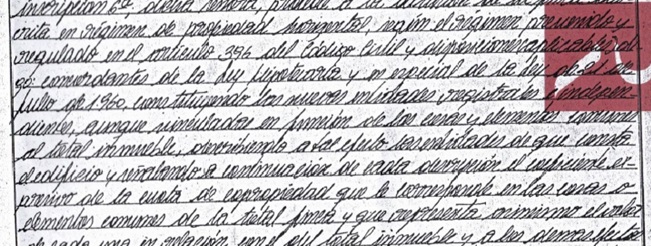 inscripción 6ª, dicha señora, procede a la
crita en régimen de propiedad horizontal, según el régimen prevenido y
regulado en el artículo 396 del Código Civil y disposiciones aplicables, di-
go: concordantes de la Ley Hipotecaria y en especial de la Ley de 21 de
Julio de 1960, constituyendo las nuevas entidades registrales e indepen-
dientes, aunque vinculadas en función de las cosas y elementos comunes
al total inmueble, describiendo a tal efecto las entidades de que consta
el edificio y señalando a continuación de cada descripción el coeficiente ex-
presivo de la cuota de copropiedad que le corresponde en las cosas o
elementos comunes de la total finca y que representa asimismo el valor
de cada una en relación con el del total inmueble y a los demás efectos